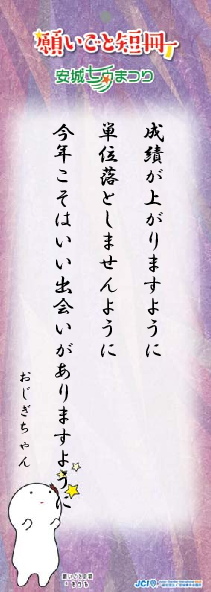 願いごと短冊
安城七夕まつり
成績が上がりますように
単位落としませんように
今年こそはいい出会いがありますように
おじぎちゃん
願いごと短冊
JCI